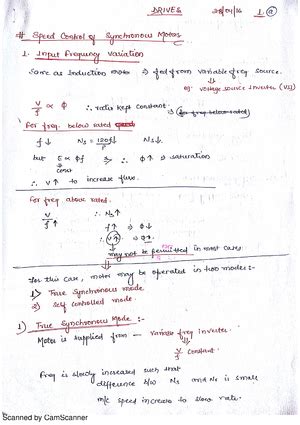 DRIVES 28/01/16 1. a
# Speed Control of Synchronous Motors
1. Input Frequency Variation
Same as Induction motor ⇒ fed from variable freq source.
eg: voltage source inverter (VSI)
V/f ∝ Φ ∴ ratio kept constant.
For freq. below rated
f↓ Ns = 120f↓/P Ns↓
but E ∝ Φf ⇒ Φ↑ ⇒ saturation
const
∴ V↑ to increase flux.
For freq above rated.
V/f↑ ∴ Ns↑
f↑ ⇒ Φ↓
∴ V↑ ;
may not be permitted in most cases
For this case, motor may be operated in two modes:-
1) True Synchronous mode
2) Self controlled mode.
1) True Synchronous Mode :-
Motor is supplied from — variable freq inverter.
V/f constant.
Freq is slowly increased such that
difference b/w Ns and Nr is small
m/c speed increases to slow rate.
Scanned by CamScanner